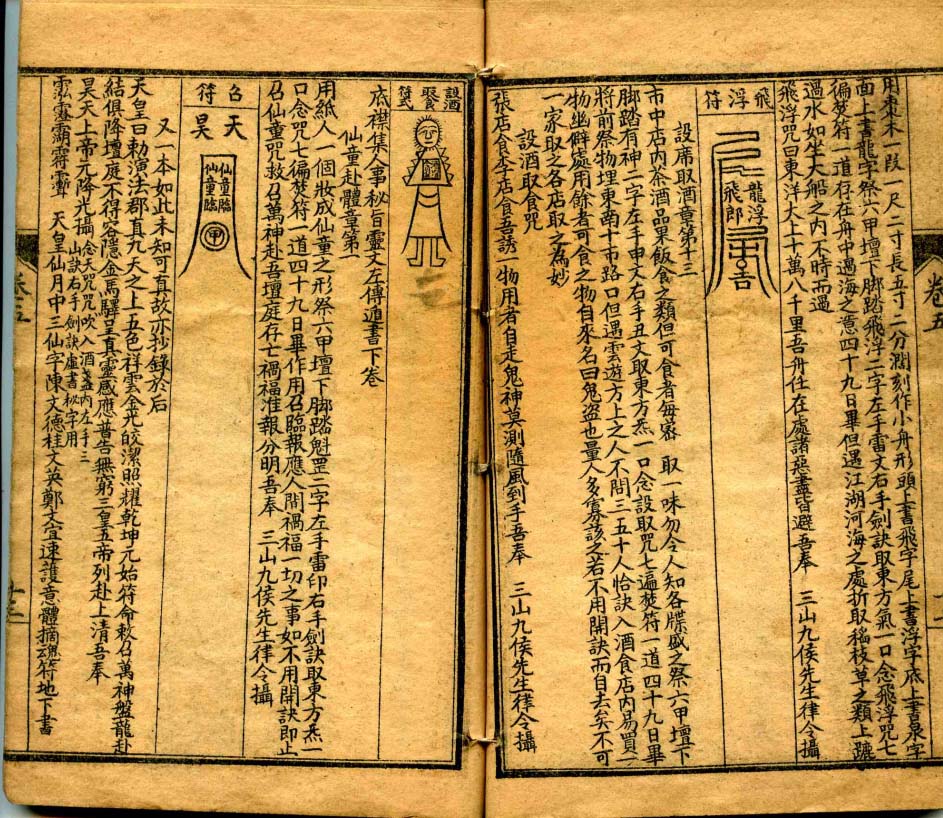 用棗木一段一尺二寸長五寸二分濶刻作小舟形頭上書飛字尾上書浮字底上書泉字
面上書龍字祭六甲壇下脚踏飛浮二字左手雷文右手劍訣取東方氣一口念飛浮咒七
徧焚符一道存在舟中過海之意四十九日畢但遇江湖河海之處折取枝草之類上
過水如坐大船之內不時而過
飛浮咒曰東洋大上十萬八千里吾舟任在處諸惡盡皆避吾奉 三山九侯先生律令攝
飛浮符
龍浮
飛郎
設席取酒章第十三
市中店內茶酒品果飯食之類但可食者每 取一味勿令人知各牒盛之祭六甲壇下
脚踏有神二字左手申文右手丑文取東方炁一口念設取咒七遍焚符一道四十九日畢
將前祭物埋東南十市路口但遇雲遊方上之人不問三五十人恰訣入酒食店內易買一
物幽僻處用餘者可食之物自來名曰鬼盜也量人多寡該之若不用開訣而自去矣不可
一家取之各店取之為妙
設酒取食咒
張店食李店食吾誘一物用者自走鬼神莫測隨風到手吾奉 三山九侯先生律令攝
卷五
設酒
取食
符式
底襟集人事秘旨靈文左傳遁書下卷
仙童赴體章第一
用紙人一個妝成仙童之形祭六甲壇下脚踏魁罡二字左手雷印右手劍訣取東方炁一
口念咒七徧焚符一道四十九日畢作用召臨報應人間禍福一切之事如不用開訣即止
召仙童咒敕召萬神赴吾壇庭存亡禍福准報分明吾奉 三山九侯先生律令攝
召符
天
昊
仙童臨
仙童臨
甲
又一本如此未知可真故亦抄錄於后
天皇曰勅演法郡真九天之上五色祥雲金光皎潔照耀乾坤元始符命敕召萬神盤龍赴
結俱降壇庭不得容隱金馬驛呈真靈感應普告無窮三皇五帝列赴上清吾奉
昊天上帝元降光攝 念天咒咒吹入酒盞內左手三
山訣右手劍訣虛書秘字用
天皇仙月中三仙字陳文德桂文英鄭文宜速護意體摘魂符地下書